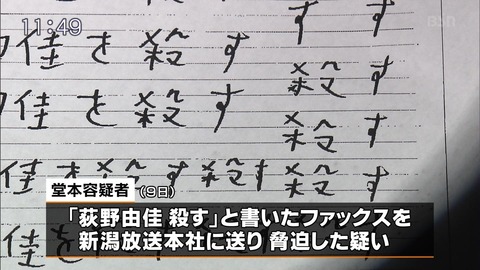 11:49
BSN
す す
佳を殺す
殺す
佳を殺す
殺す
佳を殺す殺す 殺す
佳
堂本容疑者(9日)
「荻野由佳 殺す」と書いたファックスを
新潟放送本社に送り 脅迫した疑い